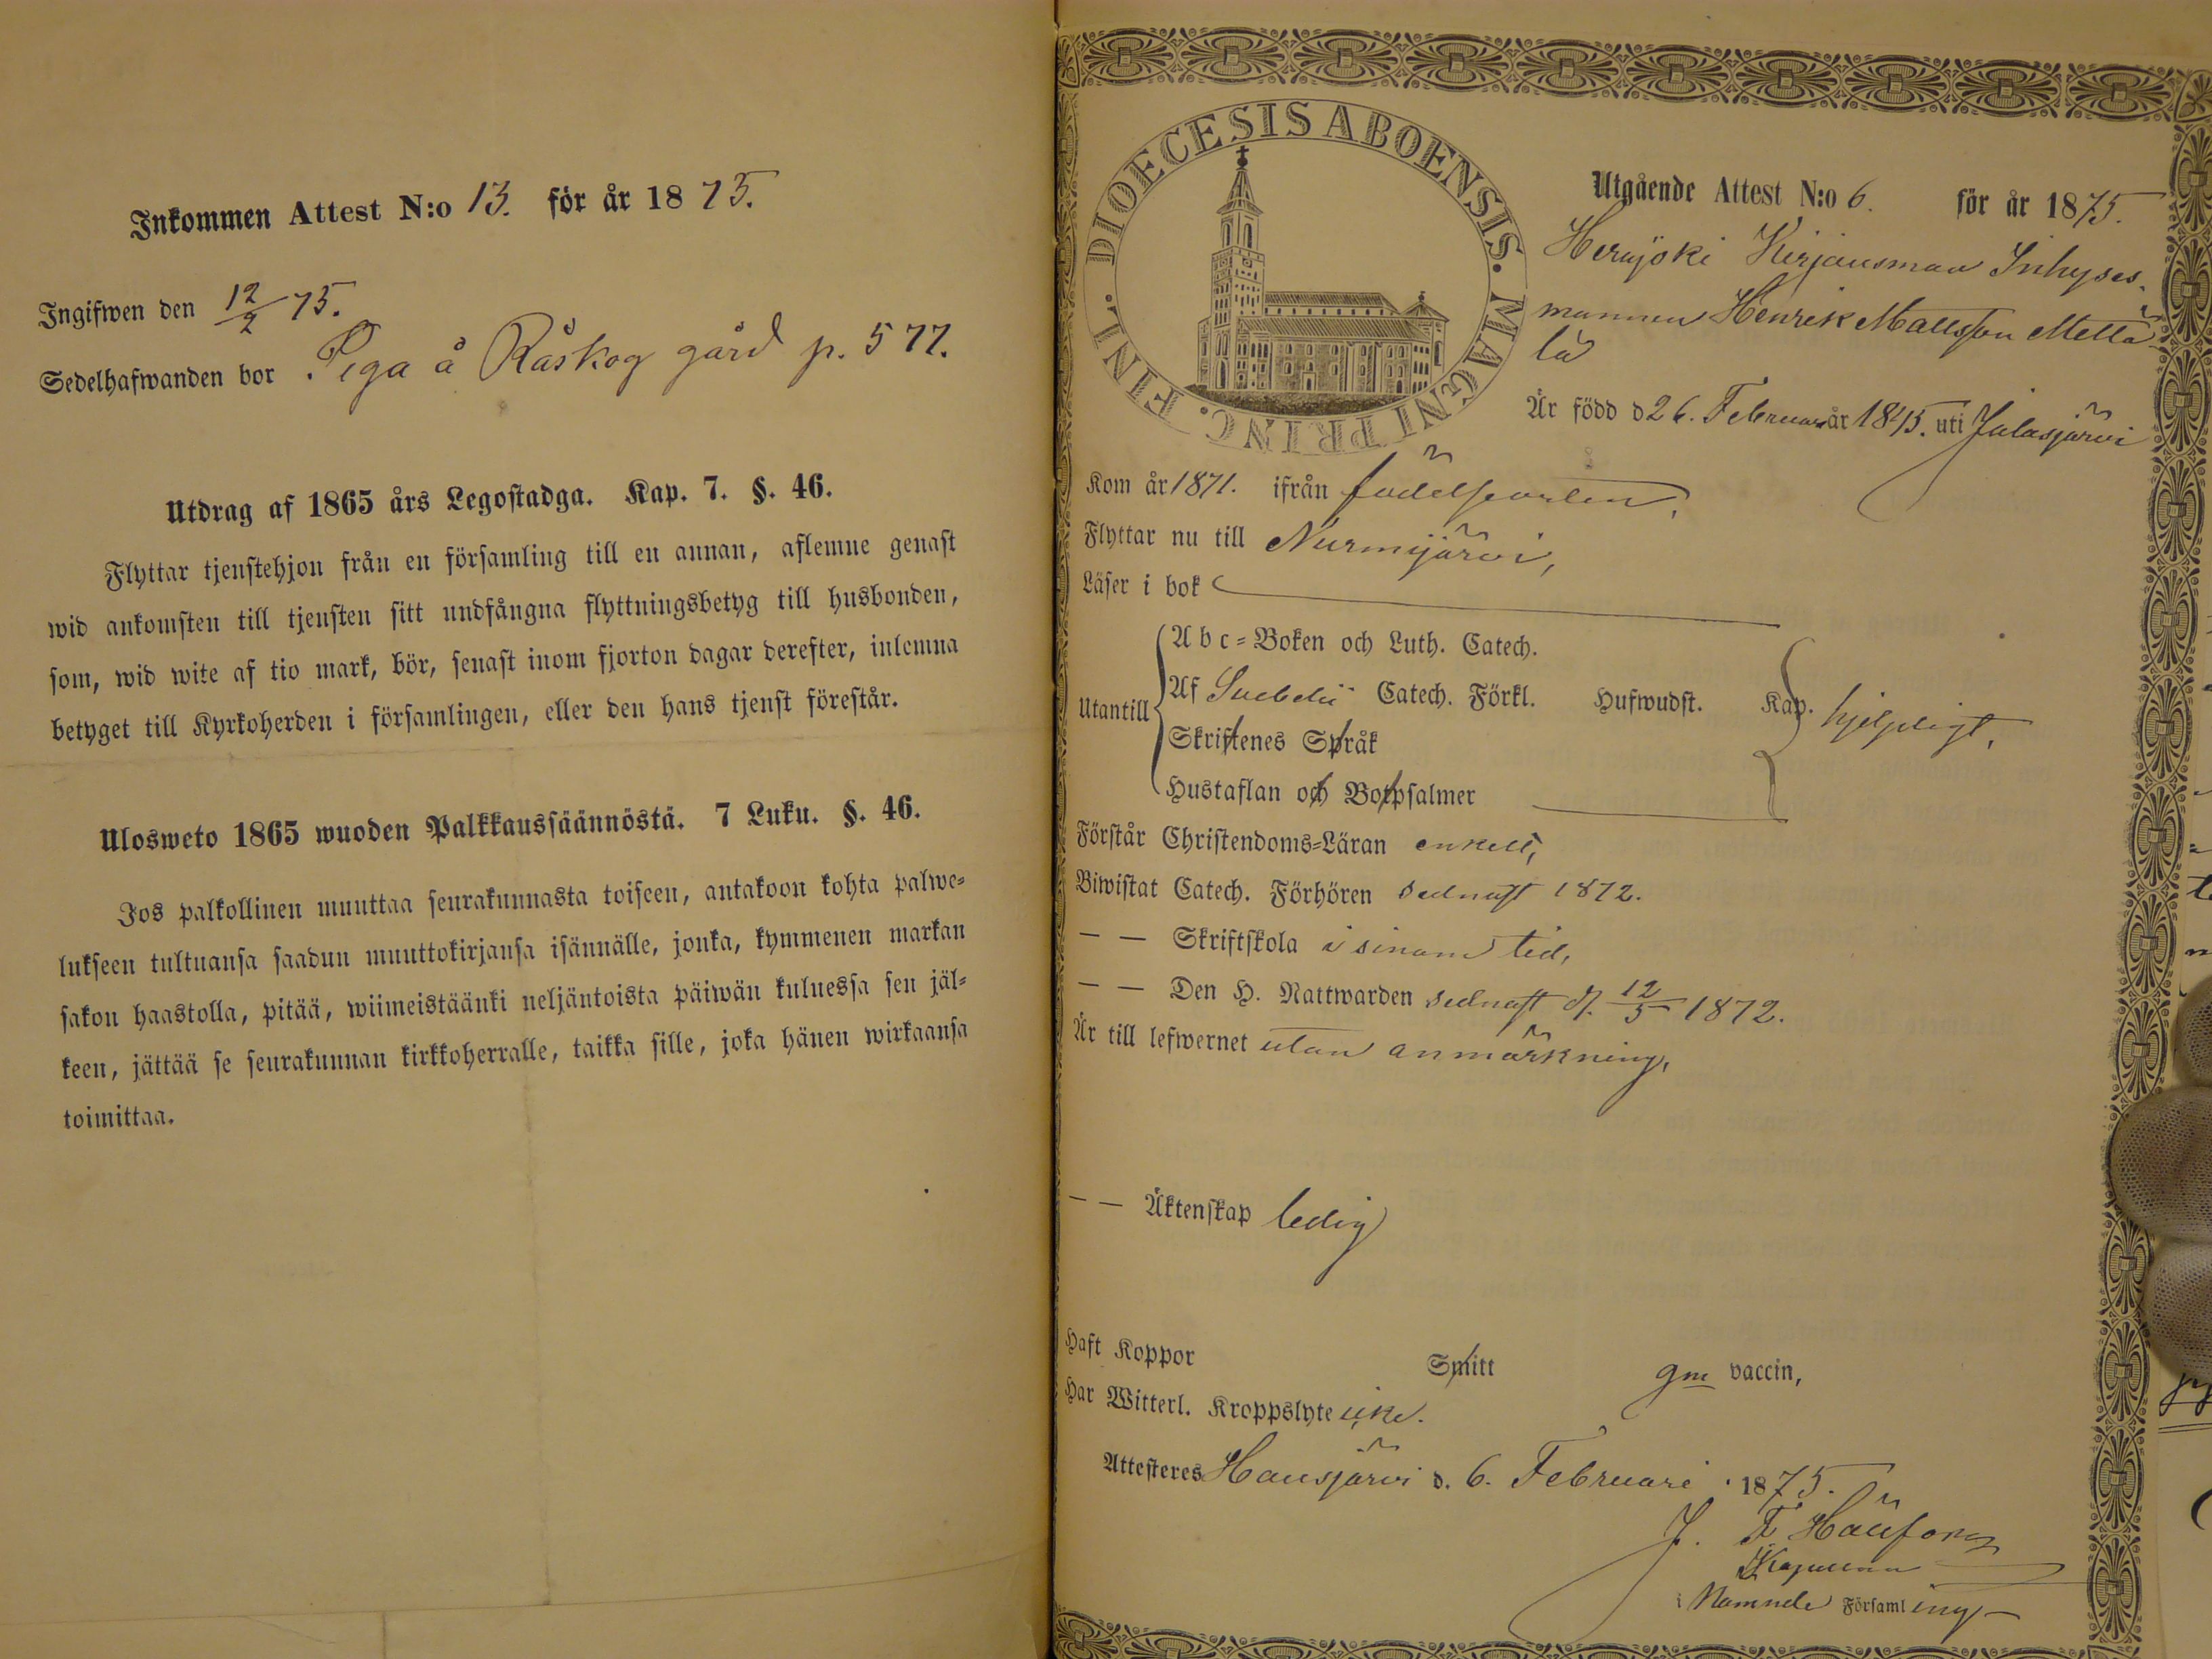 Inkommen Attest N:o 13. för år 1875.
Ingifwen den 12/2 75.
Sedelhafwanden bor Piga å Råskog gård p. 577.
Utdrag af 1865 års Legostadga. Kap. 7. §. 46.
Flyttar tjenstehjon från en församling till en annan, aflemne genast
wid ankomsten till tjensten sitt undfångna flyttningsbetyg till husbonden,
som, wid wite af tio mark, bör, senast inom fjorton dagar derefter, inlemna
betyget till Kyrkoherden i församlingen, eller den hans tjenst förestår.
Ulosweto 1865 wuoden Palkkaussäännöstä. 7 Luku. §. 46.
Jos palkollinen muuttaa seurakunnasta toiseen, antakoon kohta palwe-
lukseen tultuansa saadun muuttokirjansa isännälle, jonka, kymmenen markan
sakon haastolla, pitää, wiimeistäänki neljäntoista päiwän kuluessa sen jäl-
keen, jättää se seurakunnan kirkkoherralle, taikka sille, joka hänen wirkaansa
toimittaa.
DIOECESIS ABOENSIS. MAGNI PRINC. FINL.
Utgående Attest N:o 6. för år 1875.
Herajoki Kirjausmaa Inhyses-
mannen Henrik Mattsson Mettä
lä
Är född d 26. Februari år 1845. uti Jalasjärvi
Kom år 1871. ifrån födelseorten,
Flyttar nu till Nurmijärvi,
Läser i bok
Utantill
Abc-Boken och Luth. Catech.
Af Svebelii Catech. Förkl. Hufwudst. Kap. hjelpligt,
Skriftenes Språk
Hustaflan och Botpsalmer
Förstår Christendoms-Läran enkelt,
Biwistat Catech. Förhören sednast 1872.
— — Skriftskola i sinom tid,
— — Den H. Nattwarden sednast d. 12/5 1872.
Är till lefwernet utan anmärkning,
— — Äktenskap ledig
Haft Koppor Smitt gm vaccin,
Har Witterl. Kroppslyte icke.
Attesteres Hausjärvi d. 6. Februari 1875.
J. F. Hällfors
Kapellan
i Namnde Församling